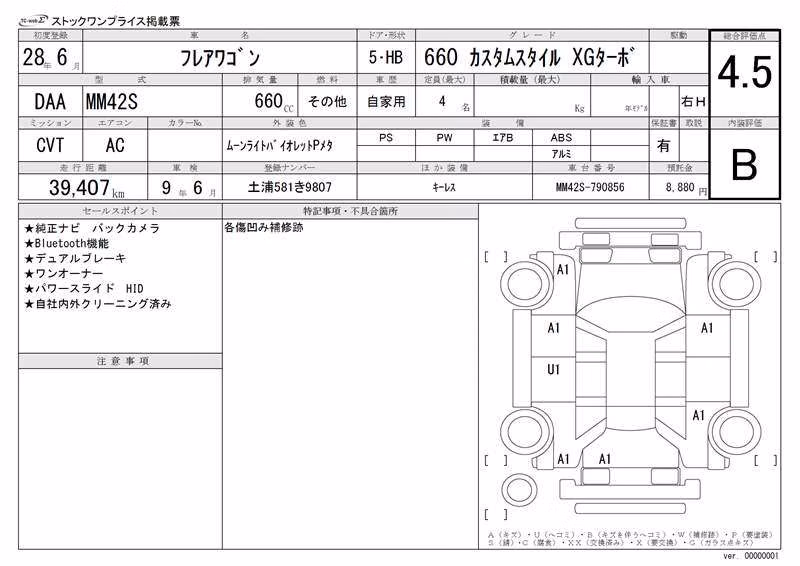 TC-webΣ ストックワンプライス掲載票
初度登録 車名 ドア・形状 グレード 駆動 総合評価点
28年 6月 フレアワゴン 5・HB 660 カスタムスタイル XGターボ 4.5
型式 排気量 燃料 車歴 定員(最大) 積載量(最大) 輸入車
DAA MM42S 660CC その他 自家用 4名 Kg 年モデル 右H
ミッション エアコン カラーNo. 外装色 装備 保証書 取説 内装評価
CVT AC ムーンライトバイオレットPメタ PS PW エアB ABS 有 B
アルミ
走行距離 車検 登録ナンバー ほか装備 車台番号 預託金
39,407km 9年 6月 土浦581き9807 キーレス MM42S-790856 8,880円
セールスポイント 特記事項・不具合箇所
★純正ナビ バックカメラ 各傷凹み補修跡
★Bluetooth機能
★デュアルブレーキ
★ワンオーナー
★パワースライド HID
★自社内外クリーニング済み
注意事項
[ ] A1 [ ]
A1 A1
U1
A1
[ ] A1 A1 [ ]
[ ]
A(キズ)・U(ヘコミ)・B(キズを伴うヘコミ)・W(補修跡)・P(要塗装)
S(錆)・C(腐食)・XX(交換済み)・X(要交換)・G(ガラス点キズ)
ver. 00000001